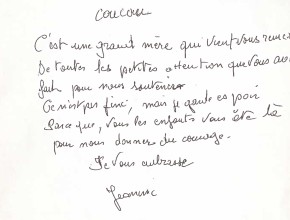 coucou
C'est une grand mère qui vient vous remer
De toutes les petites attention que vous av
fait pour nous soutenir
Ce n'est pas fini, mais je garde espoir
parce que, vous les enfants vous été là
pour nous donner du courage.
Je vous embrasse